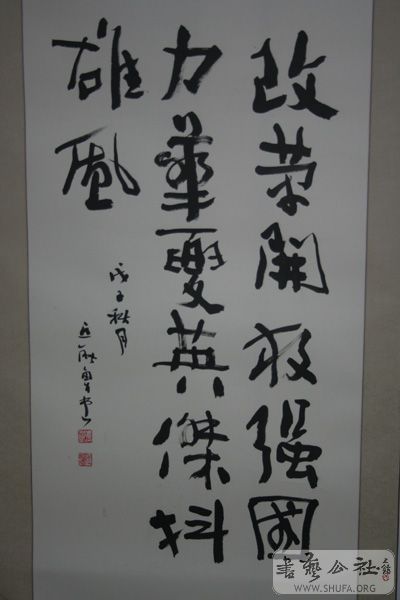 改革開放強國
力華夏英傑抖
雄風
戊子秋月
書藝公社
WWW.SHUFA.ORG